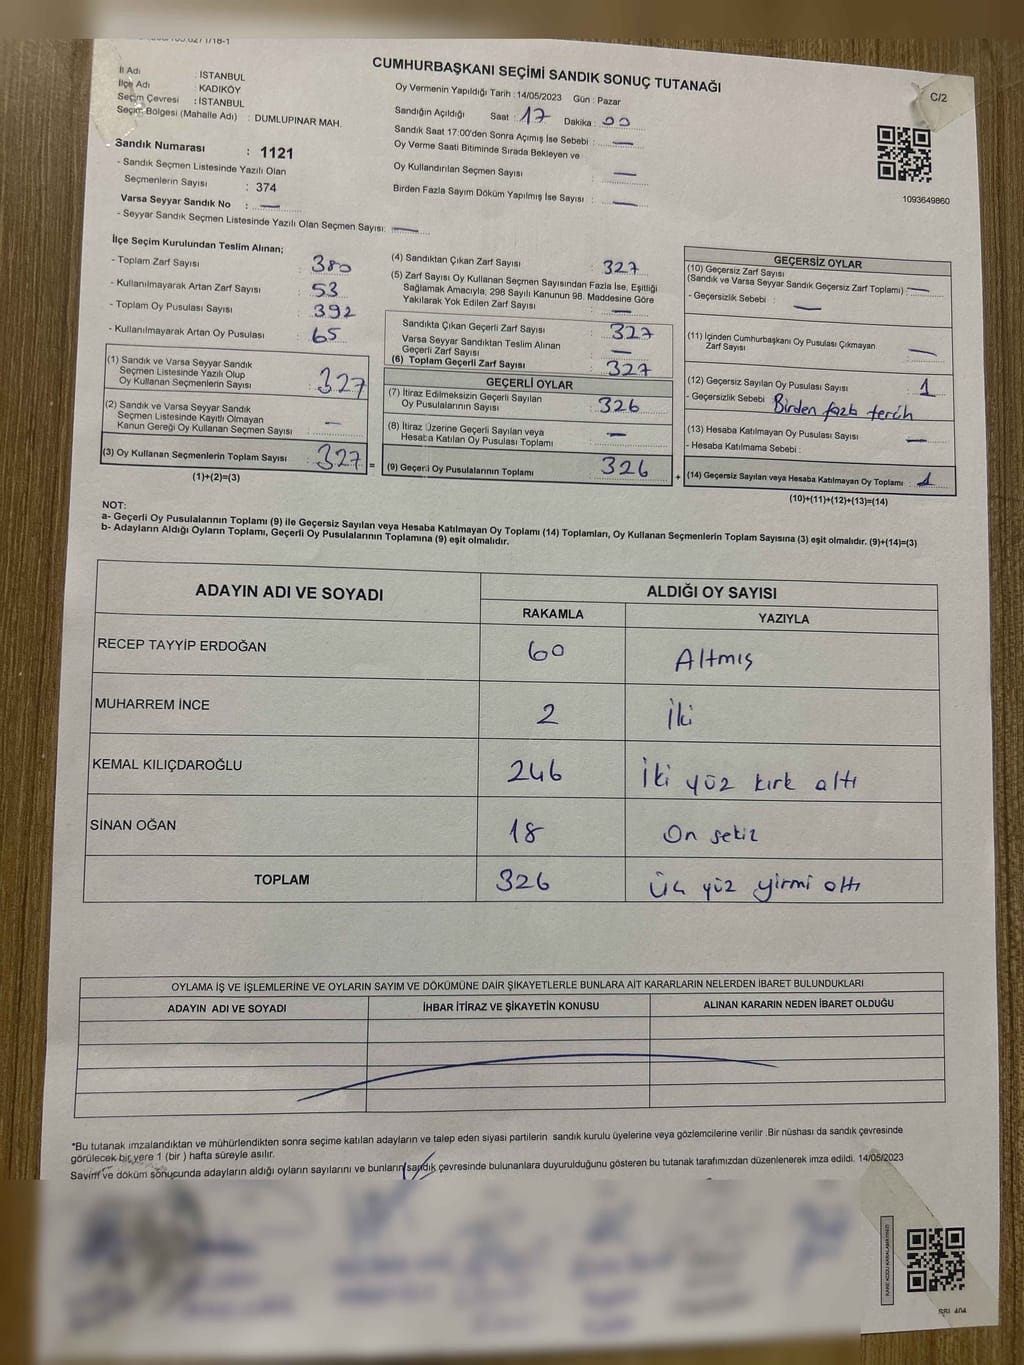 CUMHURBAŞKANI SEÇİMİ SANDIK SONUÇ TUTANAĞI
C/2
İl Adı : İSTANBUL
İlçe Adı : KADIKÖY
Seçim Çevresi : İSTANBUL
Seçim Bölgesi (Mahalle Adı) : DUMLUPINAR MAH.
Sandık Numarası : 1121
- Sandık Seçmen Listesinde Yazılı Olan
Seçmenlerin Sayısı : 374
Varsa Seyyar Sandık No : —
- Seyyar Sandık Seçmen Listesinde Yazılı Olan Seçmen Sayısı: —
Oy Vermenin Yapıldığı Tarih : 14/05/2023 Gün : Pazar
Sandığın Açıldığı Saat : 17 Dakika : 00
Sandık Saat 17:00'den Sonra Açımış İse Sebebi : —
Oy Verme Saati Bitiminde Sırada Bekleyen ve
Oy Kullandırılan Seçmen Sayısı : —
Birden Fazla Sayım Döküm Yapılmış İse Sayısı : —
1093649860
İlçe Seçim Kurulundan Teslim Alınan;
- Toplam Zarf Sayısı : 380
- Kullanılmayarak Artan Zarf Sayısı : 53
- Toplam Oy Pusulası Sayısı : 392
- Kullanılmayarak Artan Oy Pusulası : 65
(1) Sandık ve Varsa Seyyar Sandık
Seçmen Listesinde Yazılı Olup
Oy Kullanan Seçmenlerin Sayısı : 327
(2) Sandık ve Varsa Seyyar Sandık
Seçmen Listesinde Kayıtlı Olmayan
Kanun Gereği Oy Kullanan Seçmen Sayısı : —
(3) Oy Kullanan Seçmenlerin Toplam Sayısı : 327 =
(1)+(2)=(3)
(4) Sandıktan Çıkan Zarf Sayısı : 327
(5) Zarf Sayısı Oy Kullanan Seçmen Sayısından Fazla İse, Eşitliği
Sağlamak Amacıyla, 298 Sayılı Kanunun 98. Maddesine Göre
Yakılarak Yok Edilen Zarf Sayısı : —
Sandıkta Çıkan Geçerli Zarf Sayısı : 327
Varsa Seyyar Sandıktan Teslim Alınan
Geçerli Zarf Sayısı : —
(6) Toplam Geçerli Zarf Sayısı : 327
GEÇERLİ OYLAR
(7) İtiraz Edilmeksizin Geçerli Sayılan
Oy Pusulalarının Sayısı : 326
(8) İtiraz Üzerine Geçerli Sayılan veya
Hesaba Katılan Oy Pusulası Toplamı : —
(9) Geçerli Oy Pusulalarının Toplamı : 326 +
GEÇERSİZ OYLAR
(10) Geçersiz Zarf Sayısı
(Sandık ve Varsa Seyyar Sandık Geçersiz Zarf Toplamı) : —
- Geçersizlik Sebebi : —
(11) İçinden Cumhurbaşkanı Oy Pusulası Çıkmayan
Zarf Sayısı : —
(12) Geçersiz Sayılan Oy Pusulası Sayısı : 1
- Geçersizlik Sebebi : Birden fazla tercih
(13) Hesaba Katılmayan Oy Pusulası Sayısı : —
- Hesaba Katılmama Sebebi :
(14) Geçersiz Sayılan veya Hesaba Katılmayan Oy Toplamı : 1
(10)+(11)+(12)+(13)=(14)
NOT:
a- Geçerli Oy Pusulalarının Toplamı (9) ile Geçersiz Sayılan veya Hesaba Katılmayan Oy Toplamı (14) Toplamları, Oy Kullanan Seçmenlerin Toplam Sayısına (3) eşit olmalıdır. (9)+(14)=(3)
b- Adayların Aldığı Oyların Toplamı, Geçerli Oy Pusulalarının Toplamına (9) eşit olmalıdır.
ADAYIN ADI VE SOYADI ALDIĞI OY SAYISI
RAKAMLA YAZIYLA
RECEP TAYYİP ERDOĞAN 60 Altmış
MUHARREM İNCE 2 İki
KEMAL KILIÇDAROĞLU 246 İki yüz kırk altı
SİNAN OĞAN 18 On sekiz
TOPLAM 326 Üç yüz yirmi altı
OYLAMA İŞ VE İŞLEMLERİNE VE OYLARIN SAYIM VE DÖKÜMÜNE DAİR ŞİKAYETLERLE BUNLARA AİT KARARLARIN NELERDEN İBARET BULUNDUKLARI
ADAYIN ADI VE SOYADI İHBAR İTİRAZ VE ŞİKAYETİN KONUSU ALINAN KARARIN NEDEN İBARET OLDUĞU
*Bu tutanak imzalandıktan ve mühürlendikten sonra seçime katılan adayların ve talep eden siyasi partilerin sandık kurulu üyelerine veya gözlemcilerine verilir .Bir nüshası da sandık çevresinde
görülecek bir yere 1 (bir ) hafta süreyle asılır.
Sayım ve döküm sonucunda adayların aldığı oyların sayılarını ve bunların sandık çevresinde bulunanlara duyurulduğunu gösteren bu tutanak tarafımızdan düzenlenerek imza edildi. 14/05/2023